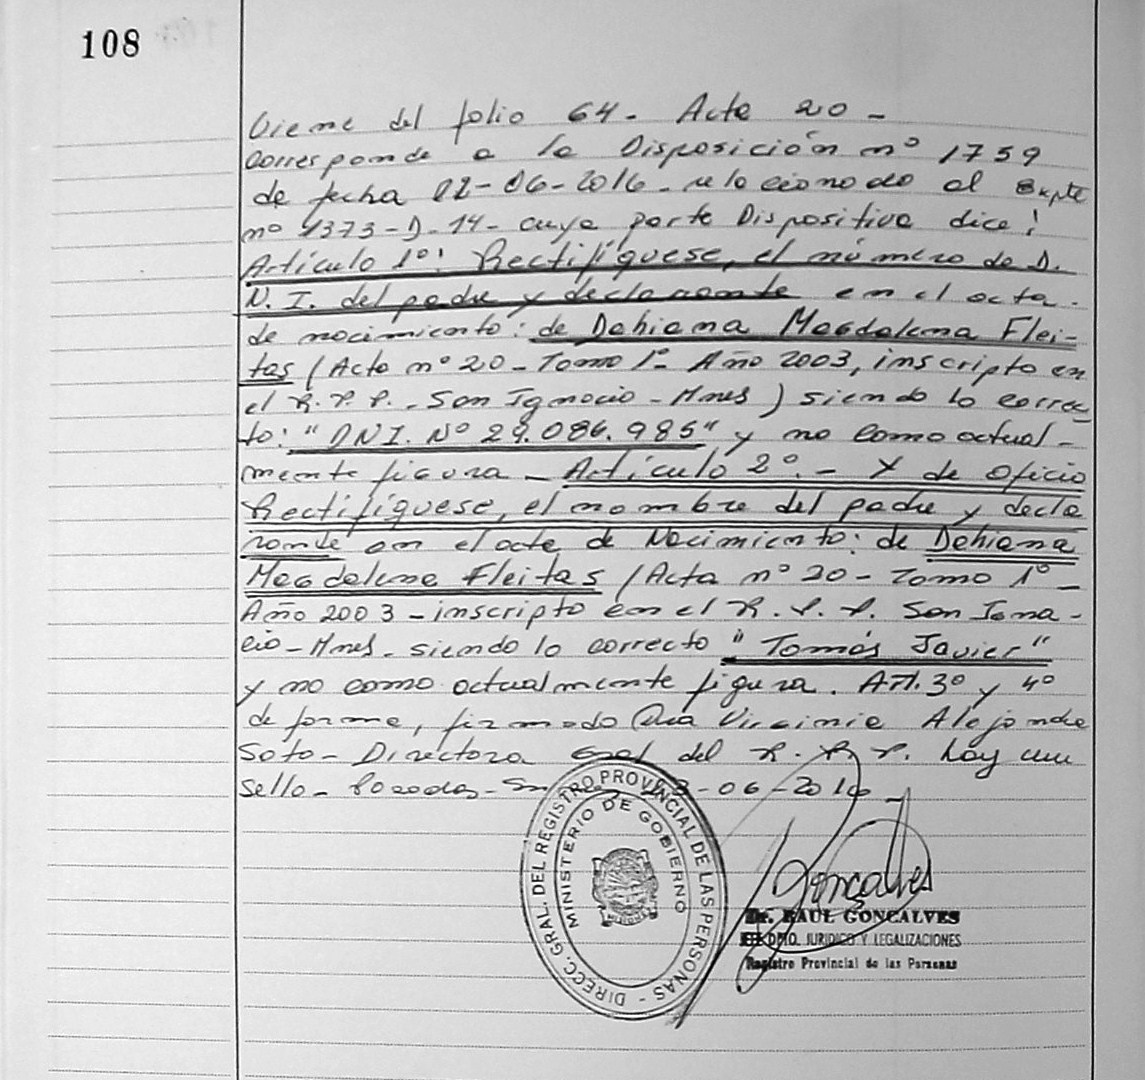 108
Viene del folio 64 - Acta 20 -
Corresponde a la Disposición nº 1759
de fecha 02-06-2016 - relacionado al Expte
nº 4373-D-14- cuya parte Dispositiva dice:
Artículo 1º: Rectifíquese, el número de D.
N. I. del padre y declarante en el acta
de nacimiento: de Dahiana Magdalena Flei-
tas (Acta nº 20 - Tomo 1º - Año 2003, inscripto en
el R. P. P. - San Ignacio - Mnes) siendo lo correc
to: "DNI. Nº 29.086.985" y no como actual-
mente figura - Artículo 2º - Y de Oficio
Rectifíquese, el nombre del padre y decla
rante en el acta de Nacimiento: de Dahiana
Magdalena Fleitas (Acta nº 20 - Tomo 1º -
Año 2003 - inscripto en el R. P. P. San Igna-
cio - Mnes - siendo lo correcto "Tomás Javier"
y no como actualmente figura. Art. 3º y 4º
de forma, firmado Dra Virginia Alejandra
Soto - Directora Gral del R. P. P. hay un
sello - Posadas - -06-2016 -
DIRECC. GRAL. DEL REGISTRO PROVINCIAL DE LAS PERSONAS -
MINISTERIO DE GOBIERNO
MISIONES
Goncalves
Dr. RAUL GONCALVES
JEFE DPTO. JURIDICO Y LEGALIZACIONES
Registro Provincial de las Personas